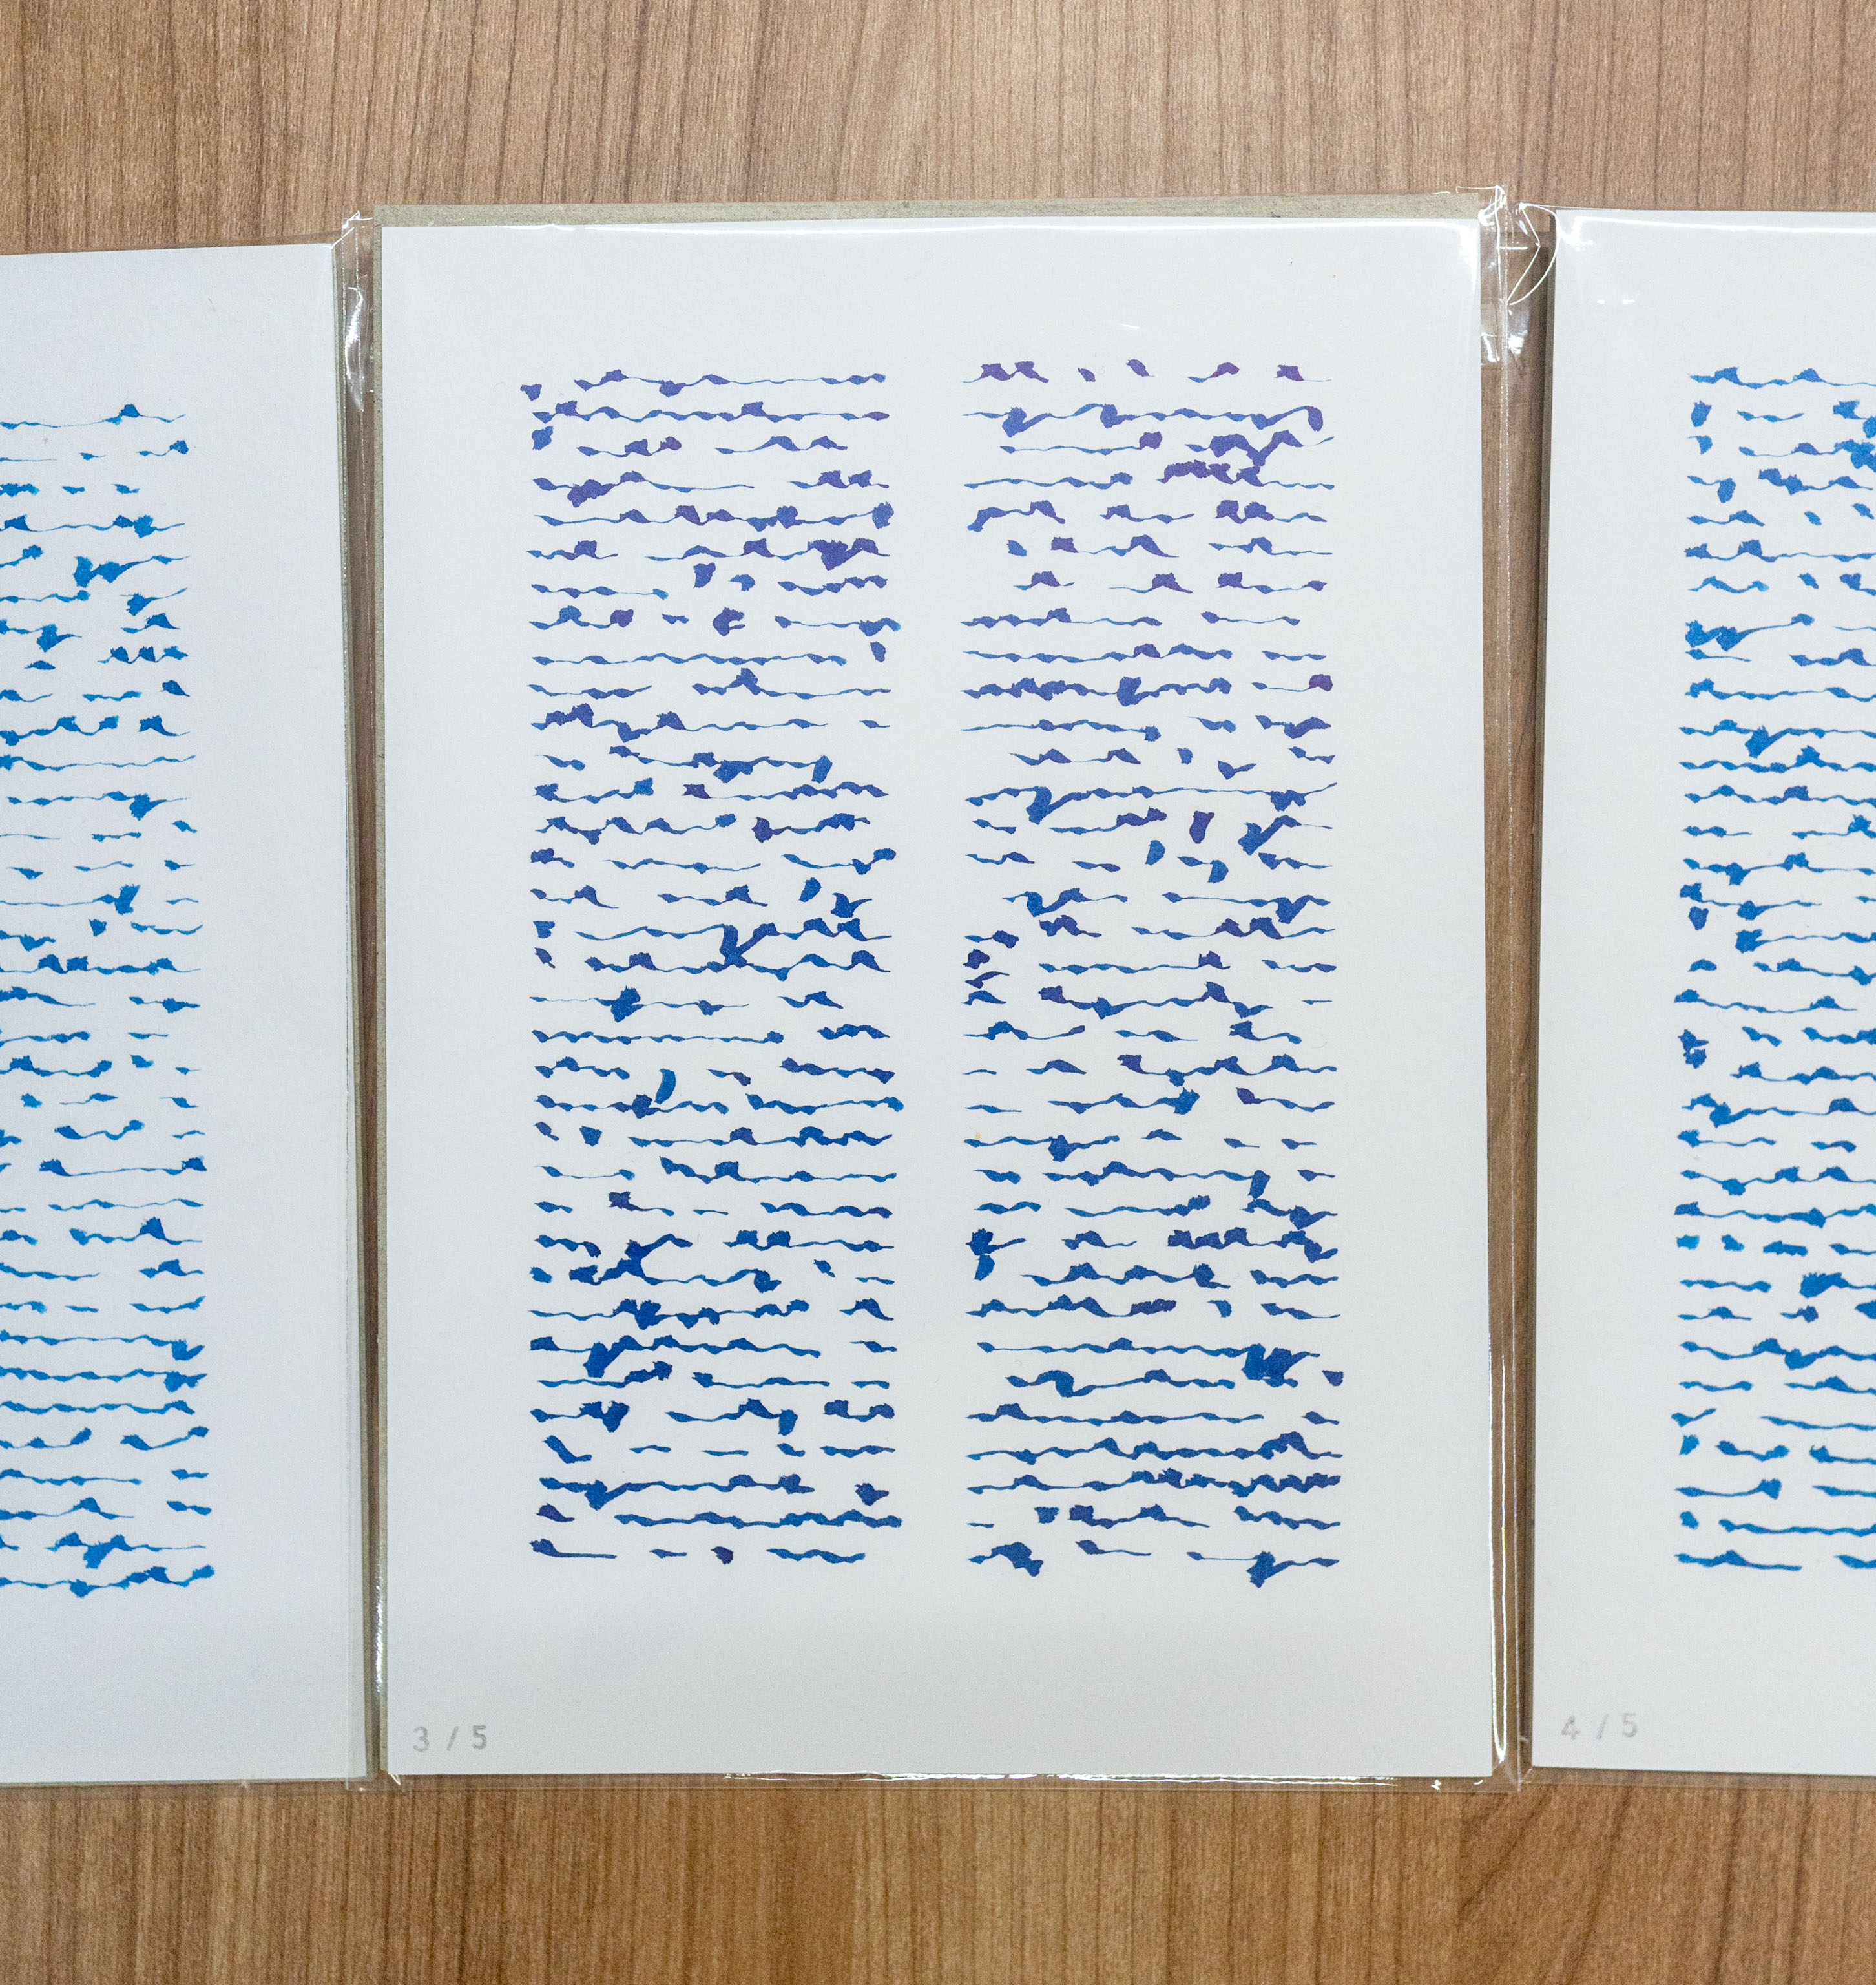 3 / 5
4 / 5